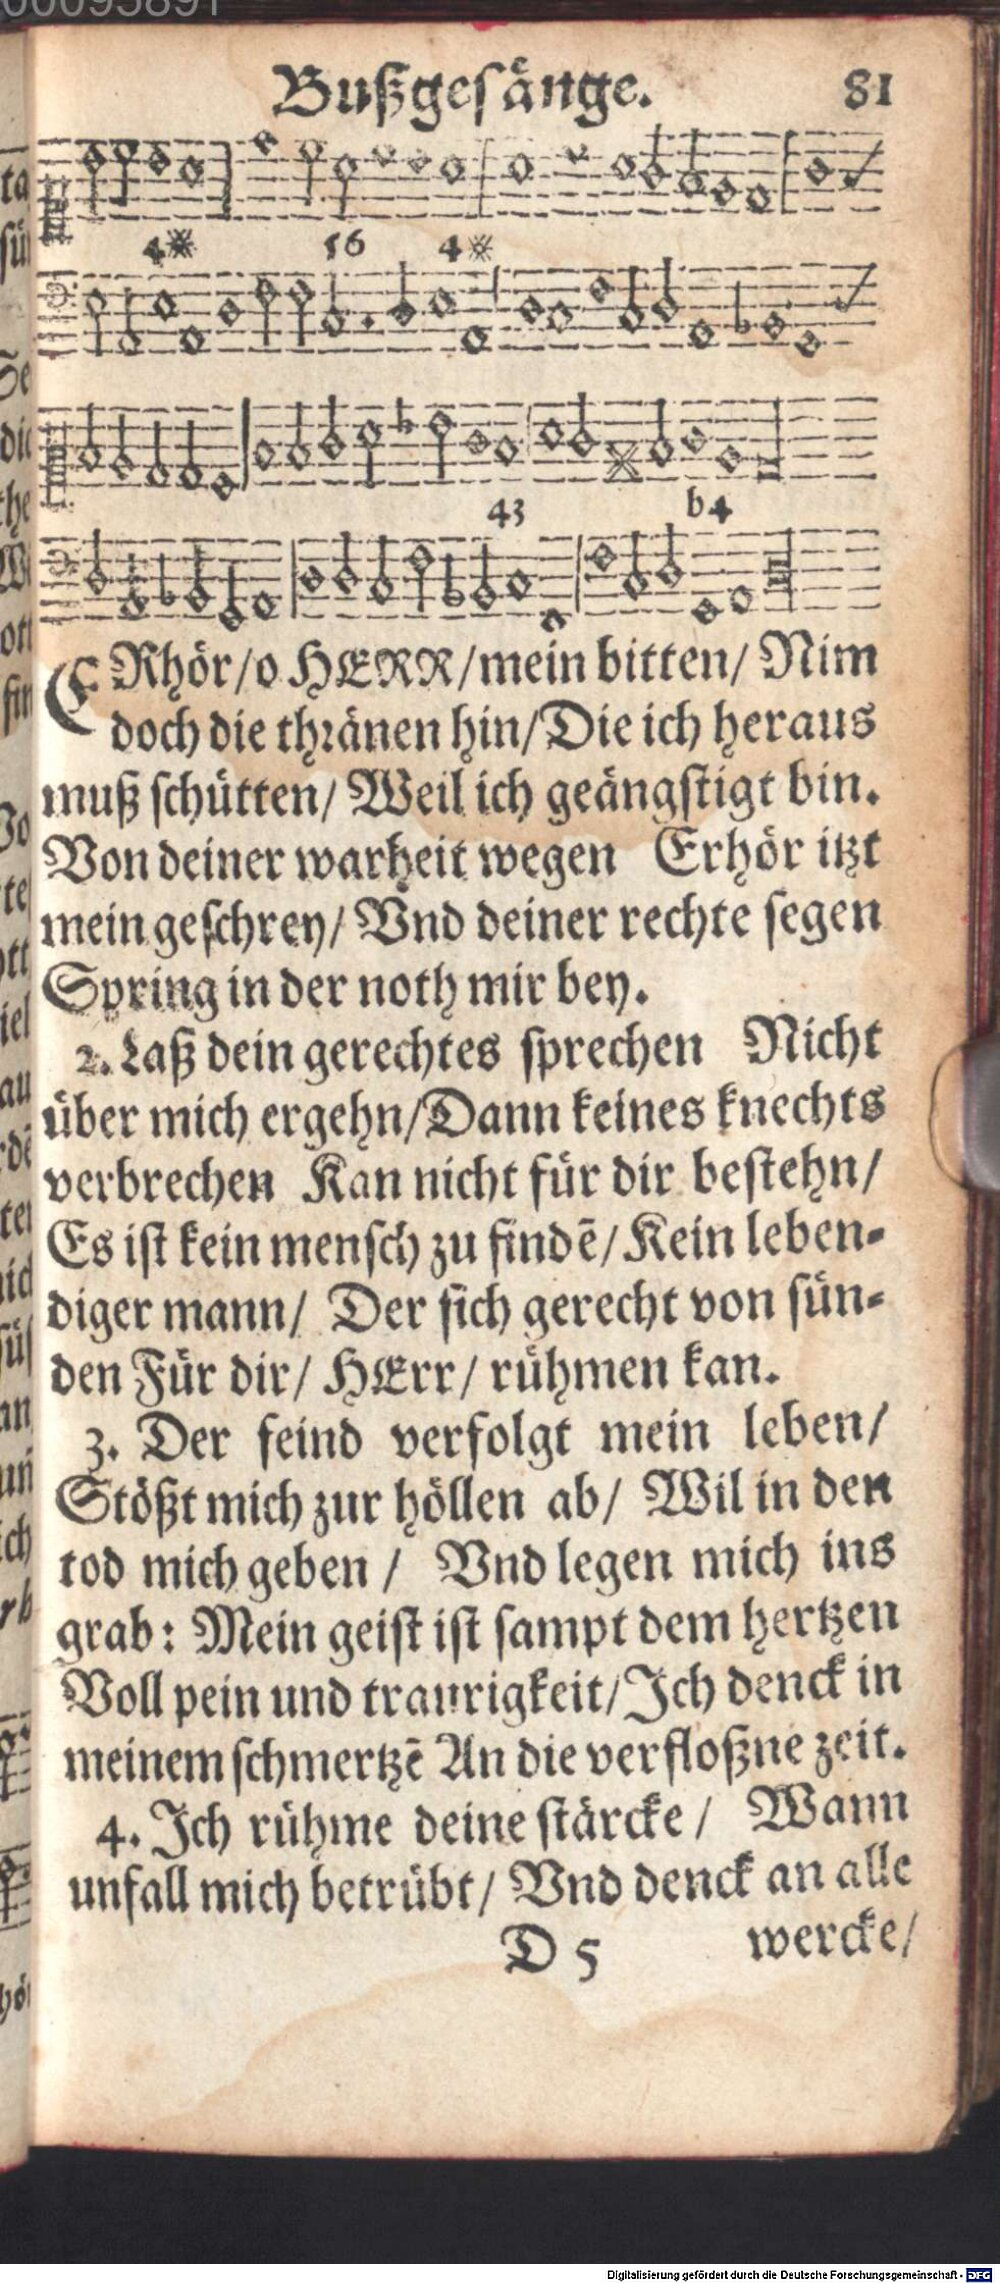 00095891
Bußgesänge. 81
4※ 56 4※
43 b4
ERhör/o HERR/mein bitten/ Nim
doch die thränen hin/Die ich heraus
muß schütten/ Weil ich geängstigt bin.
Von deiner warheit wegen Erhör itzt
mein geschrey/ Vnd deiner rechte segen
Spring in der noth mir bey.
2. Laß dein gerechtes sprechen Nicht
über mich ergehn/Dann keines knechts
verbrechen Kan nicht für dir bestehn/
Es ist kein mensch zu findē/Kein leben-
diger mann/ Der sich gerecht von sün-
den Für dir/ HErr/ rühmen kan.
3. Der feind verfolgt mein leben/
Stößt mich zur höllen ab/ Wil in den
tod mich geben / Vnd legen mich ins
grab: Mein geist ist sampt dem hertzen
Voll pein und traurigkeit/Ich denck in
meinem schmertzē An die verfloßne zeit.
4. Ich rühme deine stärcke/ Wann
unfall mich betrübt/ Vnd denck an alle
D 5 wercke/
Digitalisierung gefördert durch die Deutsche Forschungsgemeinschaft - DFG